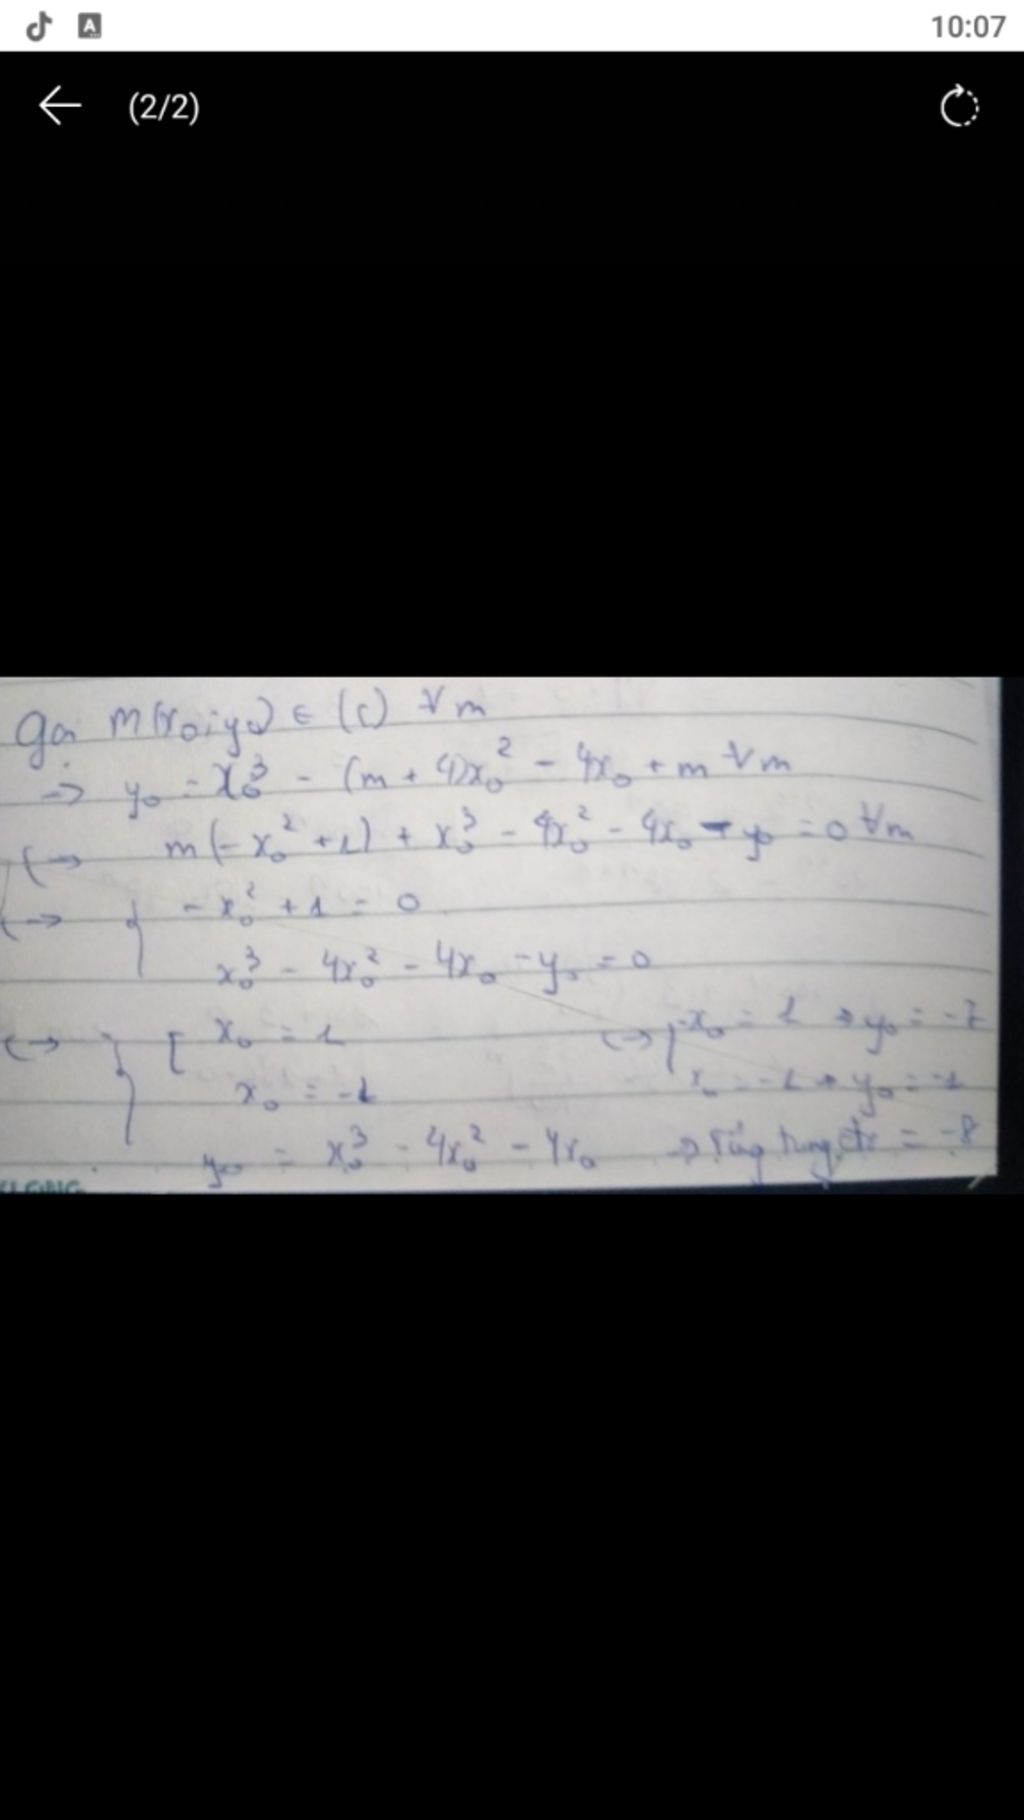 10:07
(2/2)
Gọi M(x₀; y₀) ∈ (C) ∀m
→ y₀ = x₀³ - (m + 4)x₀² - 4x₀ + m ∀m
↔ m(-x₀² + 1) + x₀³ - 4x₀² - 4x₀ - y₀ = 0 ∀m
↔ { -x₀² + 1 = 0
x₀³ - 4x₀² - 4x₀ - y₀ = 0
↔ { [ x₀ = 1
x₀ = -1
y₀ = x₀³ - 4x₀² - 4x₀
↔ [ x₀ = 1 → y₀ = -7
x₀ = -1 → y₀ = -1
→ Tổng tung độ = -8